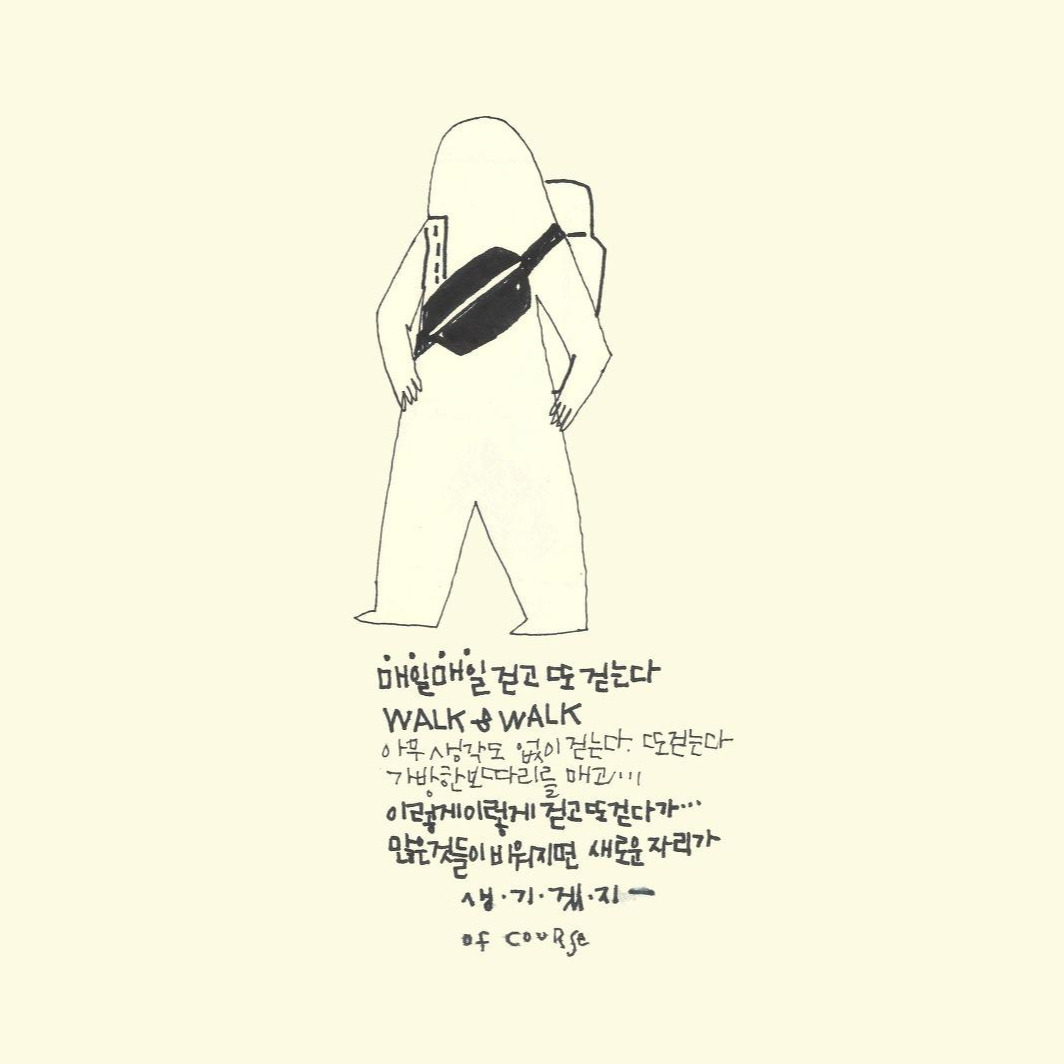 매일매일 걷고 또 걷는다
WALK & WALK
아무 생각도 없이 걷는다. 또걷는다
가방한보따리를 매고...
이렇게이렇게 걷고또걷다가...
많은것들이 비워지면 새로운 자리가
생·기·겠·지ー
of course